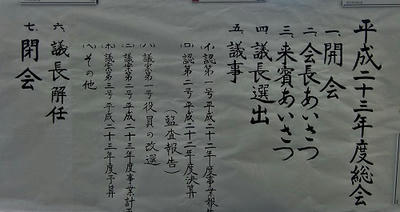 平成二十三年度総会
一、開会
二、会長あいさつ
三、来賓あいさつ
四、議長選出
五、議事
イ、認第一号平成二十二年度事業報告
ロ、認第二号平成二十二年度決算
(監査報告)
ハ、議案第一号役員の改選
ニ、議案第二号平成二十三年度事業計画
ホ、議案第三号平成二十三年度予算
ヘ、その他
六、議長解任
七、閉会